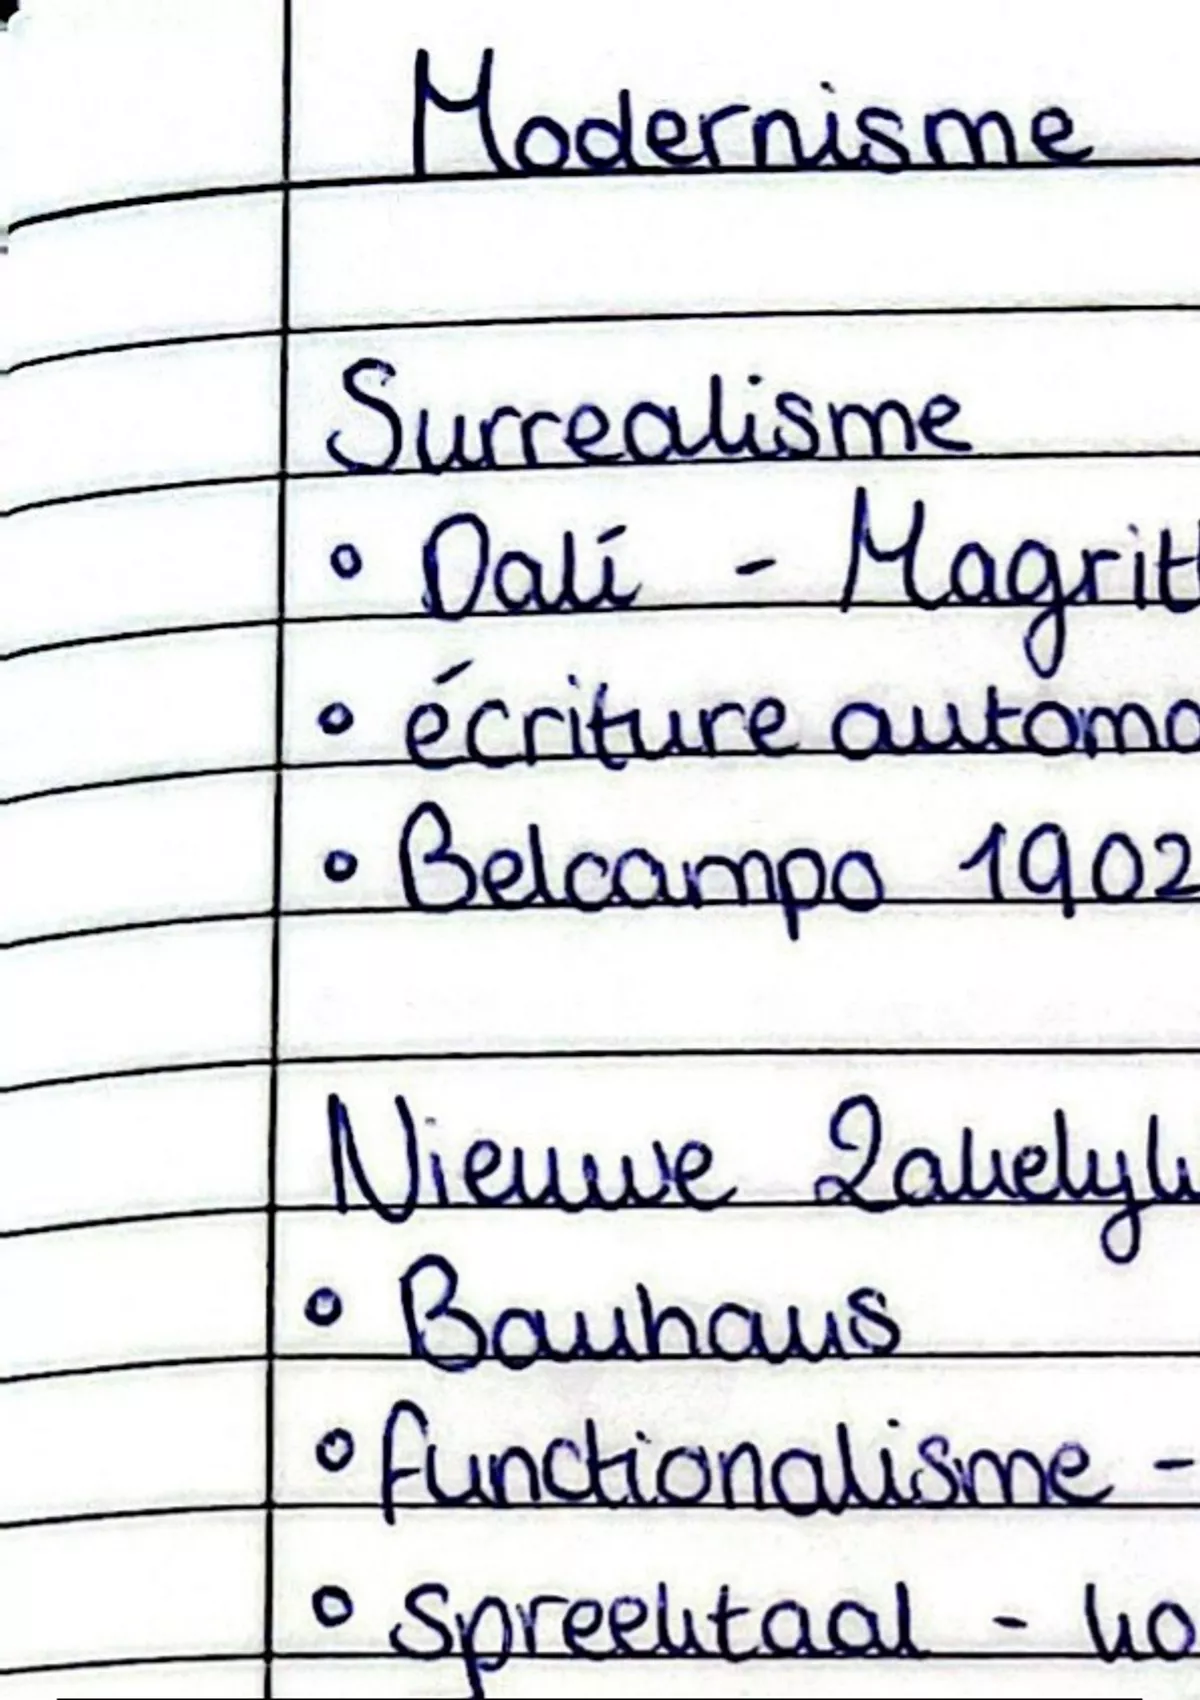 Modernisme
Surrealisme
° Dalí - Magritt
° écriture automa
° Belcampo 1902
Nieuwe Zakelyk
° Bauhaus
° functionalisme -
° spreektaal - ko